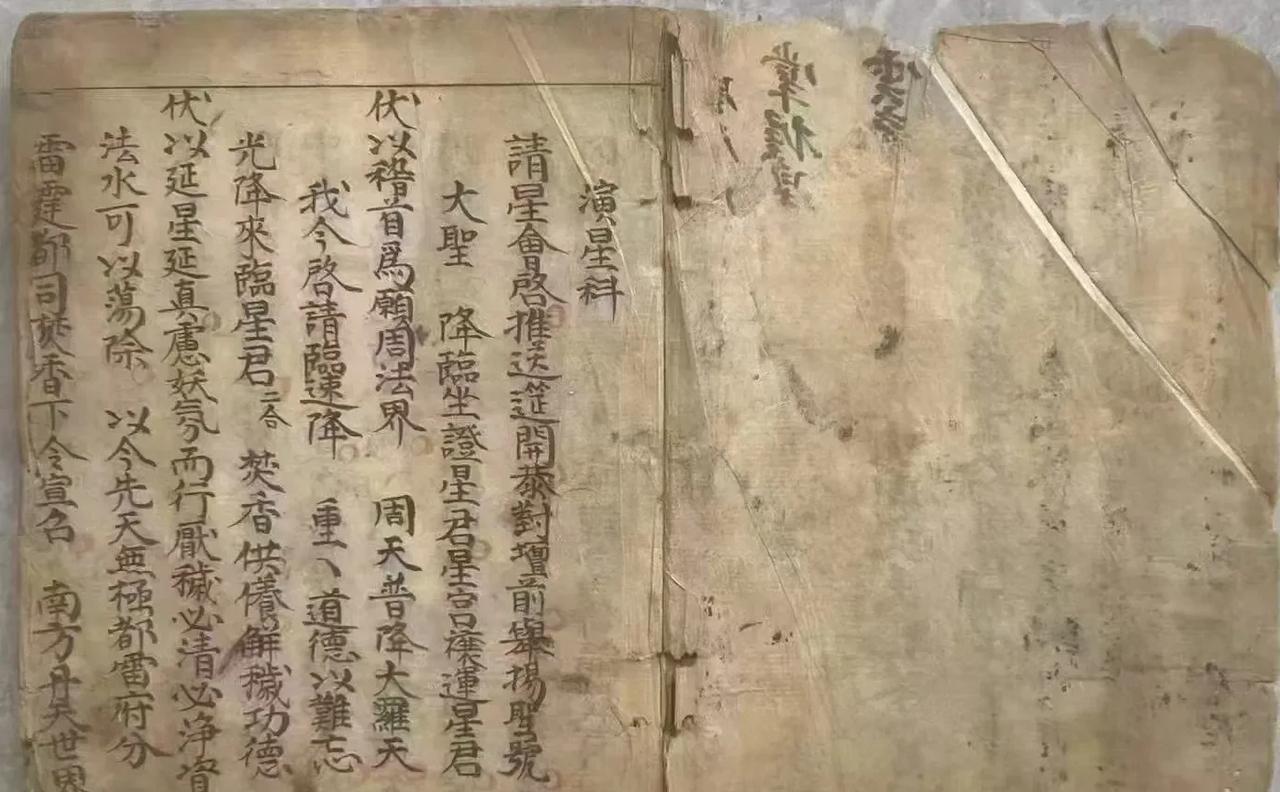 演星科
請星會啓推送筵開恭對壇前舉揚聖號
大聖 降臨坐證星君星宫禳運星君
伏以稽首爲願周法界 周天普降大羅天
我今啓請臨速降 重丶道德以難忘
光降來臨星君二合 焚香供養解穢功德
伏以延星延真慮妖氛而行厭穢必清必净資
法水可以蕩除 以今先天無極都雷府分
雷霆都司焚香下令宣名 南方丹天世界